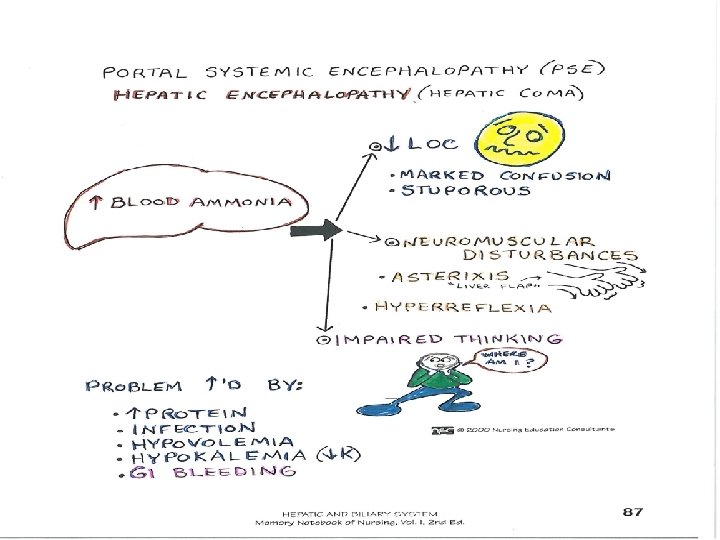 PORTAL SYSTEMIC ENCEPHALOPATHY (PSE)
HEPATIC ENCEPHALOPATHY (HEPATIC COMA)
↑ BLOOD AMMONIA
⊙ ↓ LOC
• MARKED CONFUSION
• STUPOROUS
⊙ NEUROMUSCULAR
DISTURBANCES
• ASTERIXIS
"LIVER FLAP"
• HYPERREFLEXIA
⊙ IMPAIRED THINKING
WHERE
AM I?
PROBLEM ↑'D BY:
• ↑ PROTEIN
• INFECTION
• HYPOVOLEMIA
• HYPOKALEMIA (↓K)
• GI BLEEDING
© 2000 Nursing Education Consultants
HEPATIC AND BILIARY SYSTEM
Memory Notebook of Nursing, Vol. I, 2nd Ed.
87